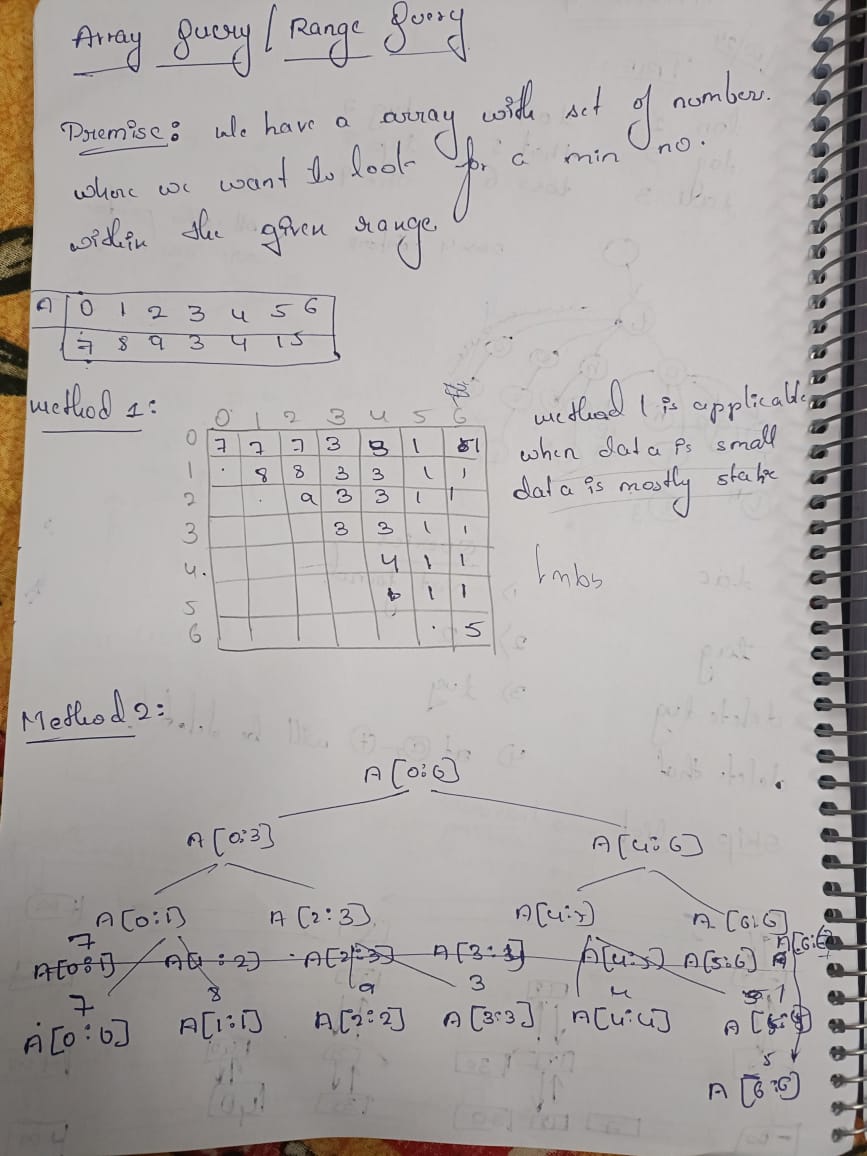 Array Query / Range Query
Premise: We have a array with set of number.
where we want to look for a min no.
within the given range.
A 0 1 2 3 4 5 6
7 8 9 3 4 1 5
method 1:
0 1 2 3 4 5 6
0 7 7 7 3 3 1 1
1 8 8 3 3 1 1
2 9 3 3 1 1
3 3 3 1 1
4. 4 1 1
5 1 1
6 5
method 1 is applicable
when data is small
data is mostly static
Method 2:
A[0:6]
A[0:3] A[4:6]
A[0:1] A[2:3] A[4:5] A[6:6]
A[0:1] A[1:2] A[2:3] A[3:3] A[4:5] A[5:6] A[6:6]
7 8 9 3 4 1
A[0:0] A[1:1] A[2:2] A[3:3] A[4:4] A[5:5]
5
A[6:6]